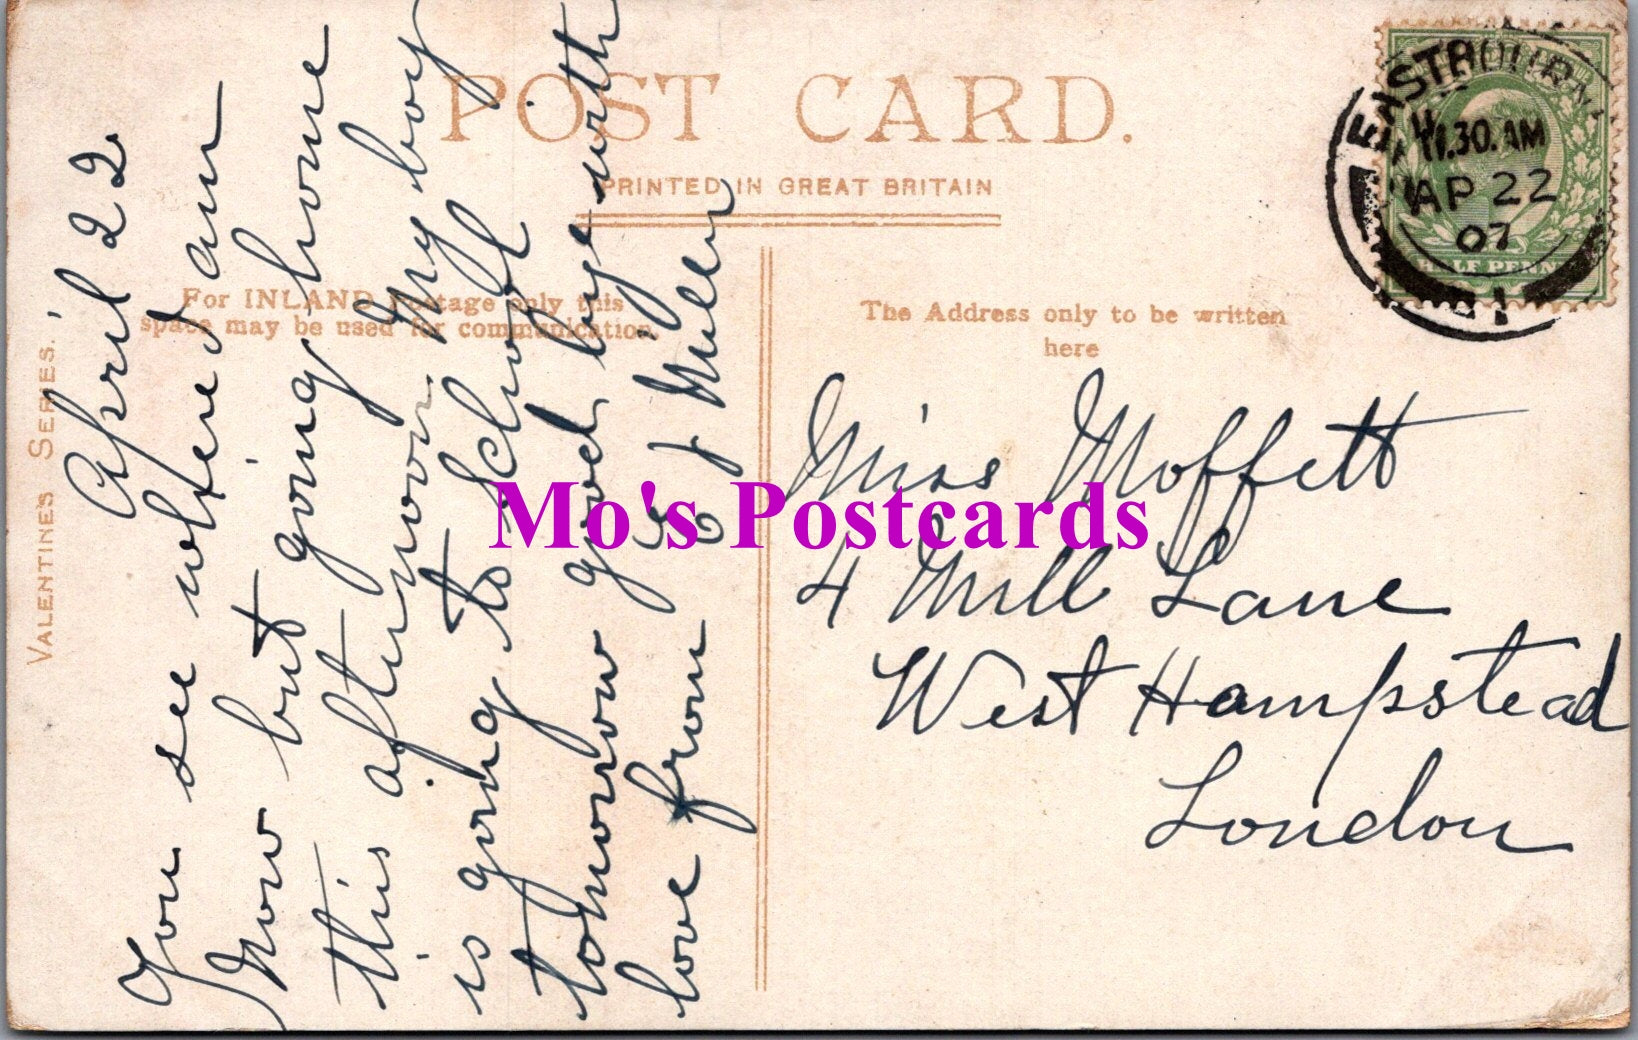 POST CARD.
PRINTED IN GREAT BRITAIN
For INLAND Postage only this
space may be used for communication.
The Address only to be written
here
VALENTINE'S SERIES.
April 22
You see where I am
now but going home
this afternoon. My boy
is going to school
tomorrow good bye with
love from E J Miller
Miss Moffett
4 Mill Lane
West Hampstead
London
EASTBOURNE
11.30. AM
AP 22
07
HALF PENNY
Mo's Postcards